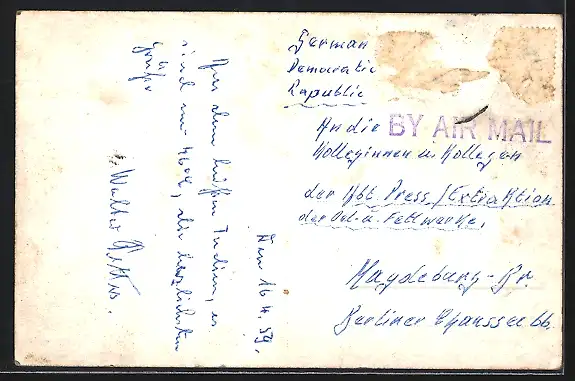 German
Democratic
Republic
BY AIR MAIL
An die
Kolleginnen u. Kollegen
der Abt. Press/Extraktion
der Oel- u. Fettwerke,
Magdeburg-Br.
Berliner Chaussee 66.
Den 16.4.59.
Aus dem heißen Indien, es
sind um 40°, die herzlichsten
Grüße
Walter